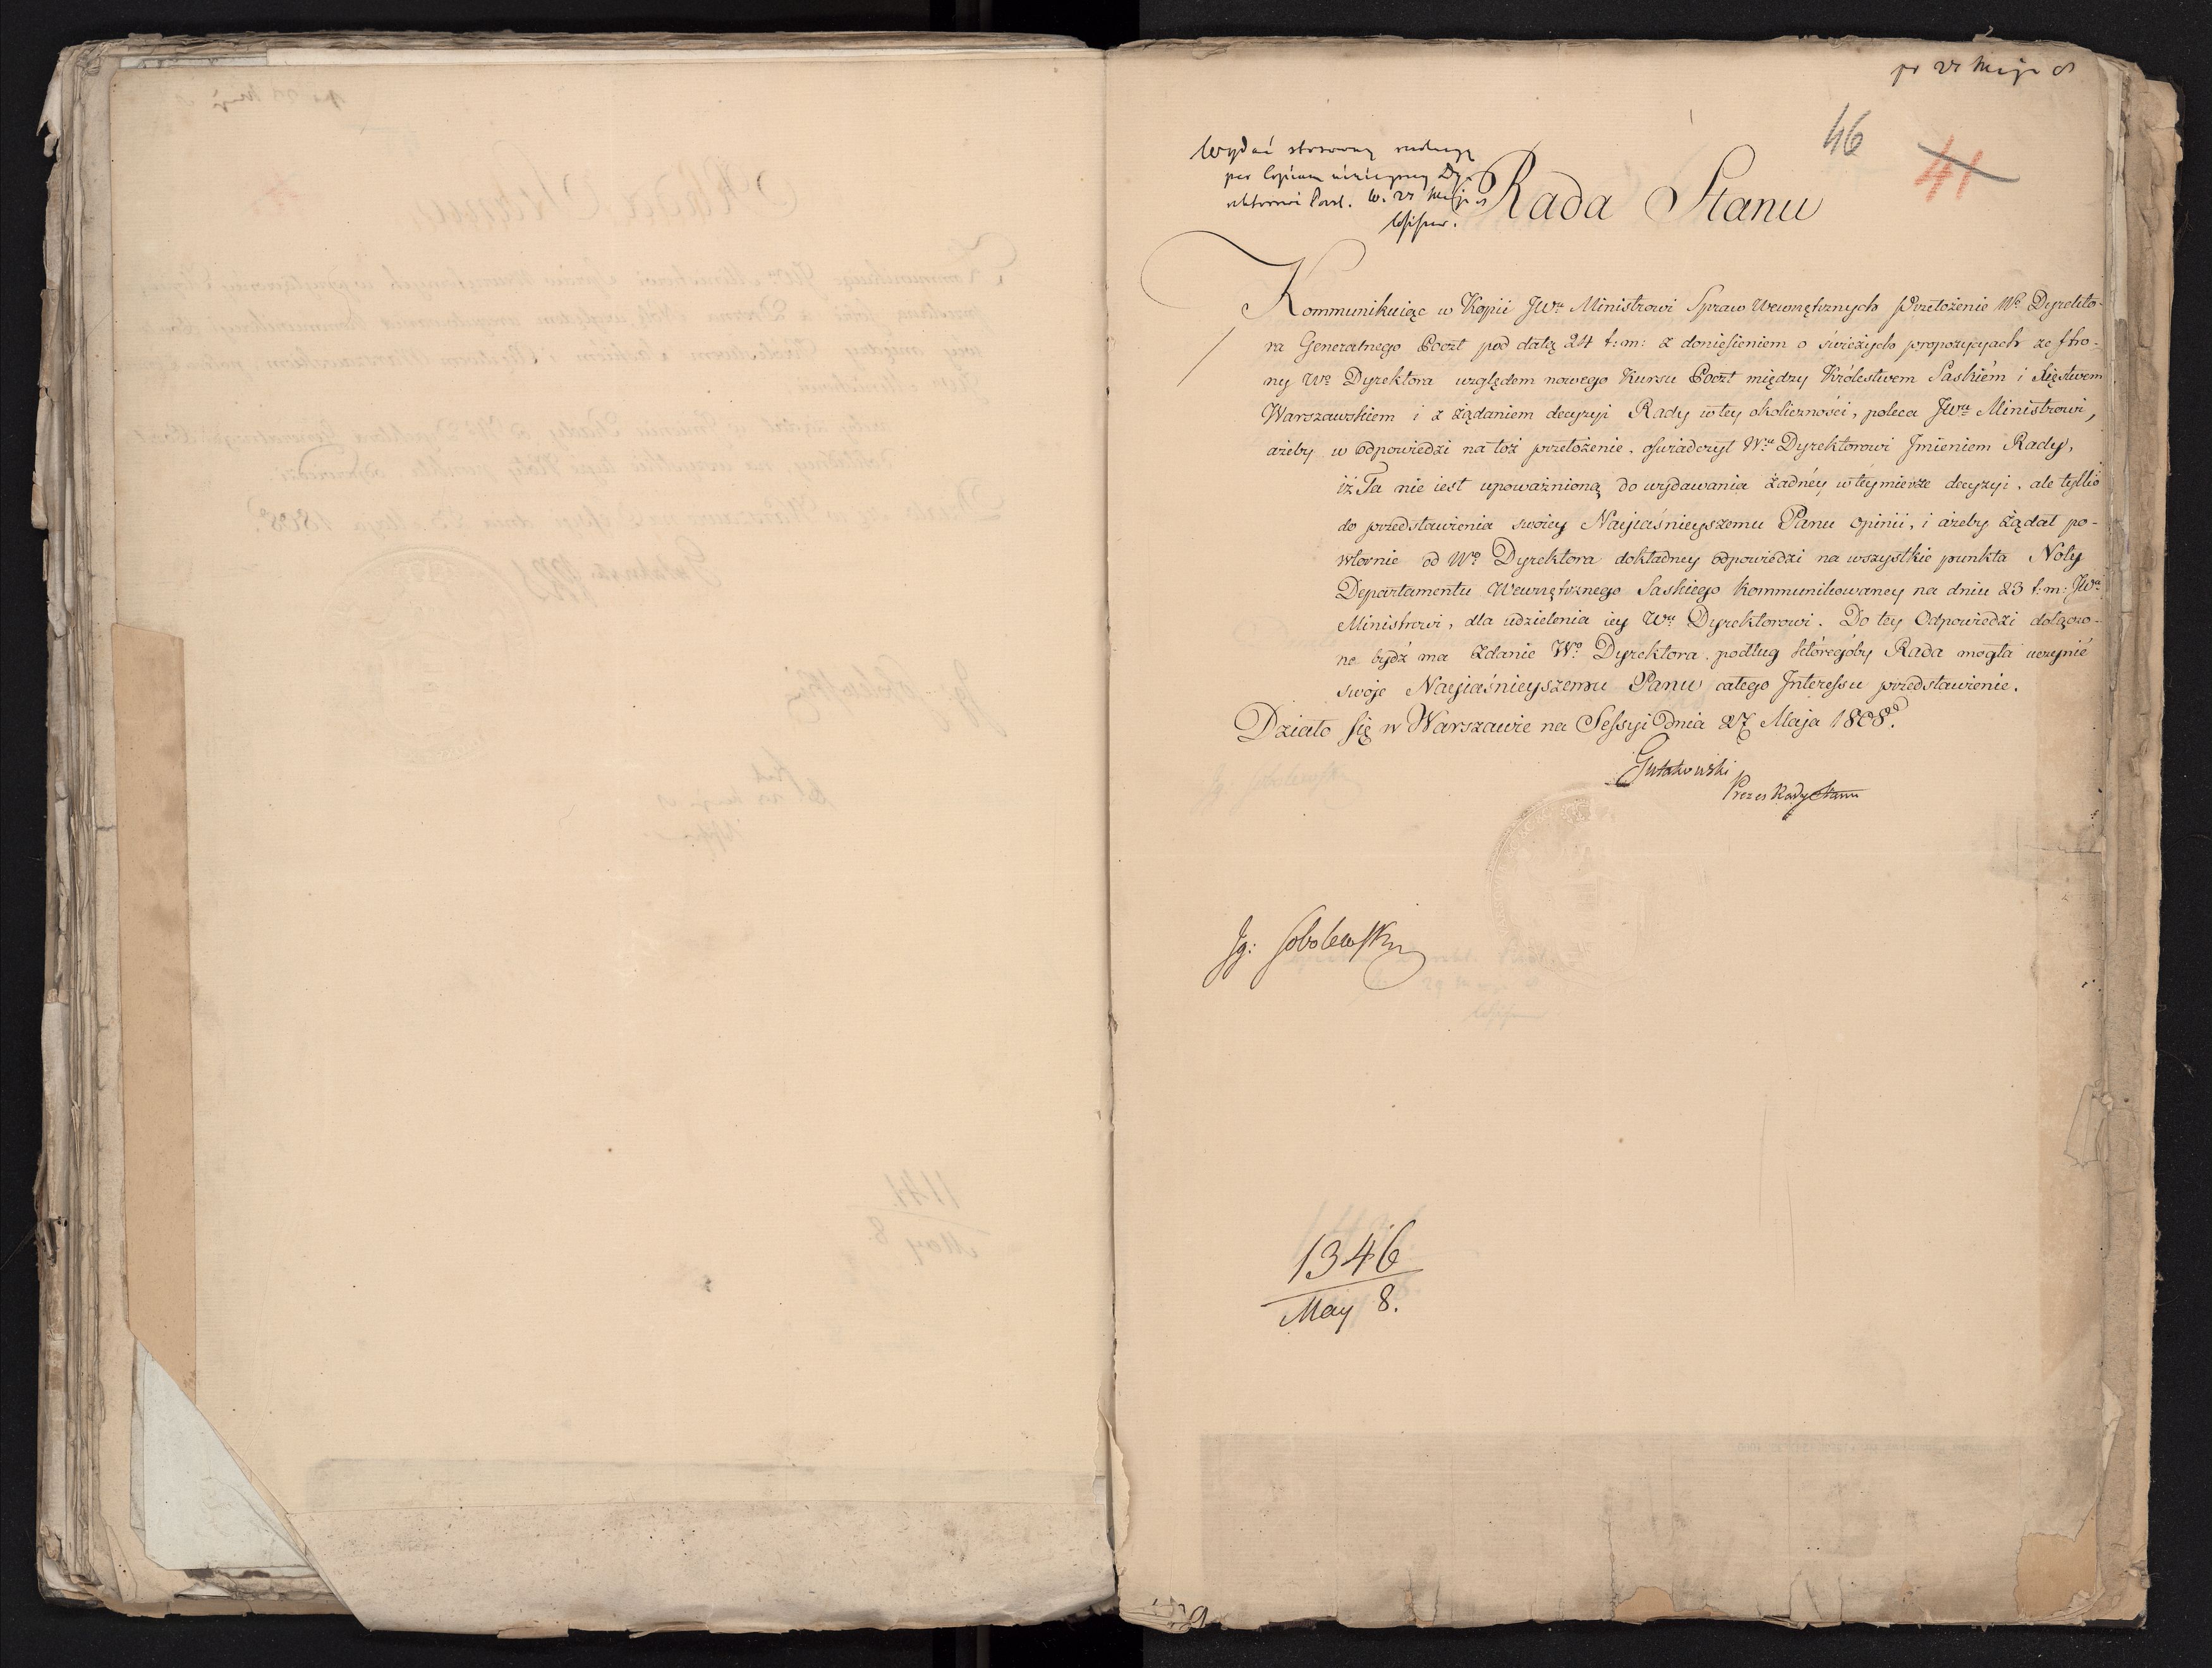 46
41
Wydać stosowną
per Copiam
Rada Stanu
Kommunikuiąc w Kopii JWu Ministrowi Spraw Wewnętrznych Przełożenie Wo Dyrekto-
ra Generalnego Poczt pod datą 24 t: m: z doniesieniem o świeżych propozycyach ze stro-
ny Wo Dyrektora względem nowego Kursu Poczt między Królestwem Saskiém i Xięstwem
Warszawskiem i z żądaniem decyzyi Rady w tey okoliczności, poleca JWu Ministrowi,
ażeby w odpowiedzi na toż przełożenie, oświadczył Wu Dyrektorowi Jmieniem Rady,
iż Ta nie iest upoważnioną do wydawania żadnéy w téy mierze decyzyi, ale tylko
do przedstawienia swoiey Nayiaśnieyszemu Panu opinii, i ażeby żądał po-
wtornie od Wo Dyrektora dokładney odpowiedzi na wszystkie punkta Noty
Departamentu Wewnętrznego Saskiego kommunikowaney na dniu 23 t: m: JWu
Ministrowi, dla udzielenia iey Wu Dyrektorowi. Do tey Odpowiedzi dołączo-
ne bydź ma Zdanie Wo Dyrektora, podług którégoby Rada mogła uczynić
swoje Nayiaśnieyszemu Panu całego Interessu przedstawienie.
Działo się w Warszawie na Sessyi dnia 27 Maja 1808o.
Gutakowski
Prezes Rady Stanu
Jg: Sobolewski
1346
May 8.